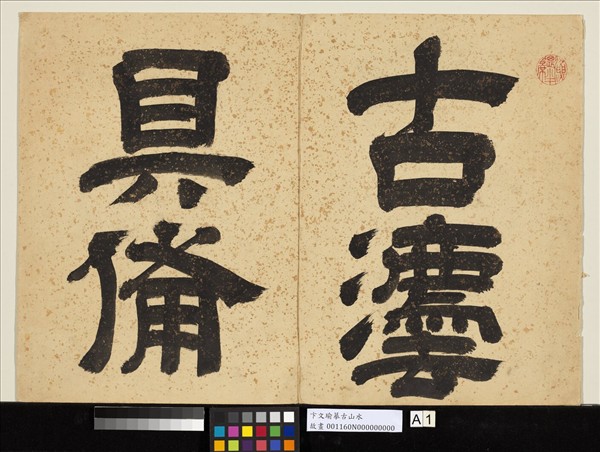 古灋
具備
卞文瑜摹古山水
故畫 001160N000000000
A 1